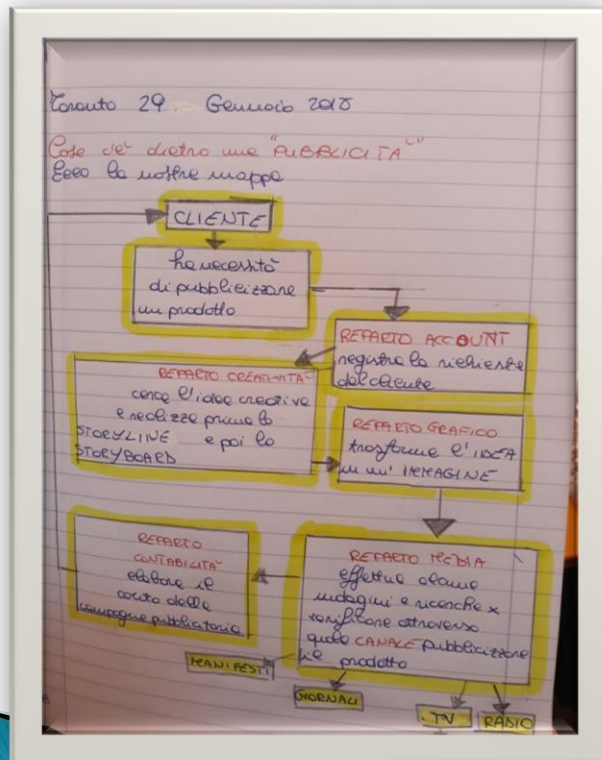 Taranto 29 Gennaio 2018
Cosa c'è dietro una "PUBBLICITÀ"
Ecco la nostra mappa
CLIENTE
ha necessità
di pubblicizzare
un prodotto
REPARTO ACCOUNT
registra la richiesta
del cliente
REPARTO CREATIVITÀ
cerca l'idea creativa
e realizza prima lo
STORYLINE e poi lo
STORYBOARD
REPARTO GRAFICO
trasforma l'IDEA
in un' IMMAGINE
REPARTO MEDIA
effettua alcune
indagini e ricerche x
verificare attraverso
quale CANALE pubblicizzare
il prodotto
REPARTO
CONTABILITÀ
elabora il
conto della
campagna pubblicitaria
MANIFESTI
GIORNALI
TV
RADIO